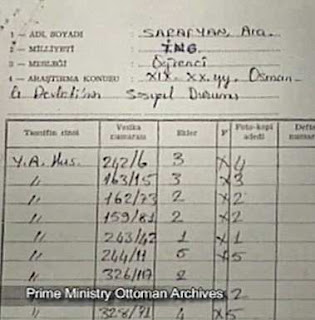 1 — ADI, SOYADI : SARAFYAN, Ara.
2 — MİLLİYETİ : İNG.
3 — MESLEĞİ : Öğrenci
4 — ARAŞTIRMA KONUSU : XIX. XX.yy. Osman-
lı Devleti'nin Sosyal Durumu
Tasnifin cinsi Vesika numarası Ekler F Foto-kopi adedi Defte numar
Y.A. Hus. 242/6 3 X 4
" 163/15 3 X 3
" 162/73 2 X 2
" 159/81 2 X 2
" 243/42 1 X 1
" 244/11 5 X 5
" 326/117 2
2
" 328/71 4 X 5
Prime Ministry Ottoman Archives